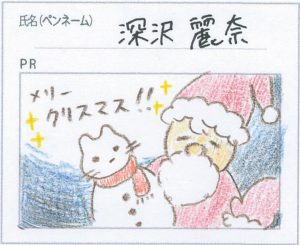 氏名(ペンネーム) 深沢 麗奈
PR
メリー
クリスマス!!